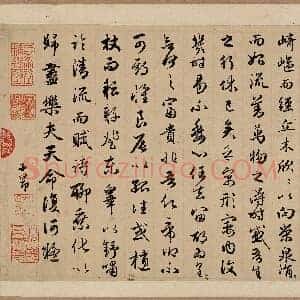 崎嶇而經丘木欣欣以向榮泉涓
而始流善萬物之得時感吾生
之行休已矣乎寓形宇內復
幾時曷不委心任去留胡為
之富貴非吾願帝鄉不
可期懷良辰以孤往或植
杖而耘耔登東皋以舒嘯
臨清流而賦詩聊乘化以
歸盡樂夫天命復何疑
子昂